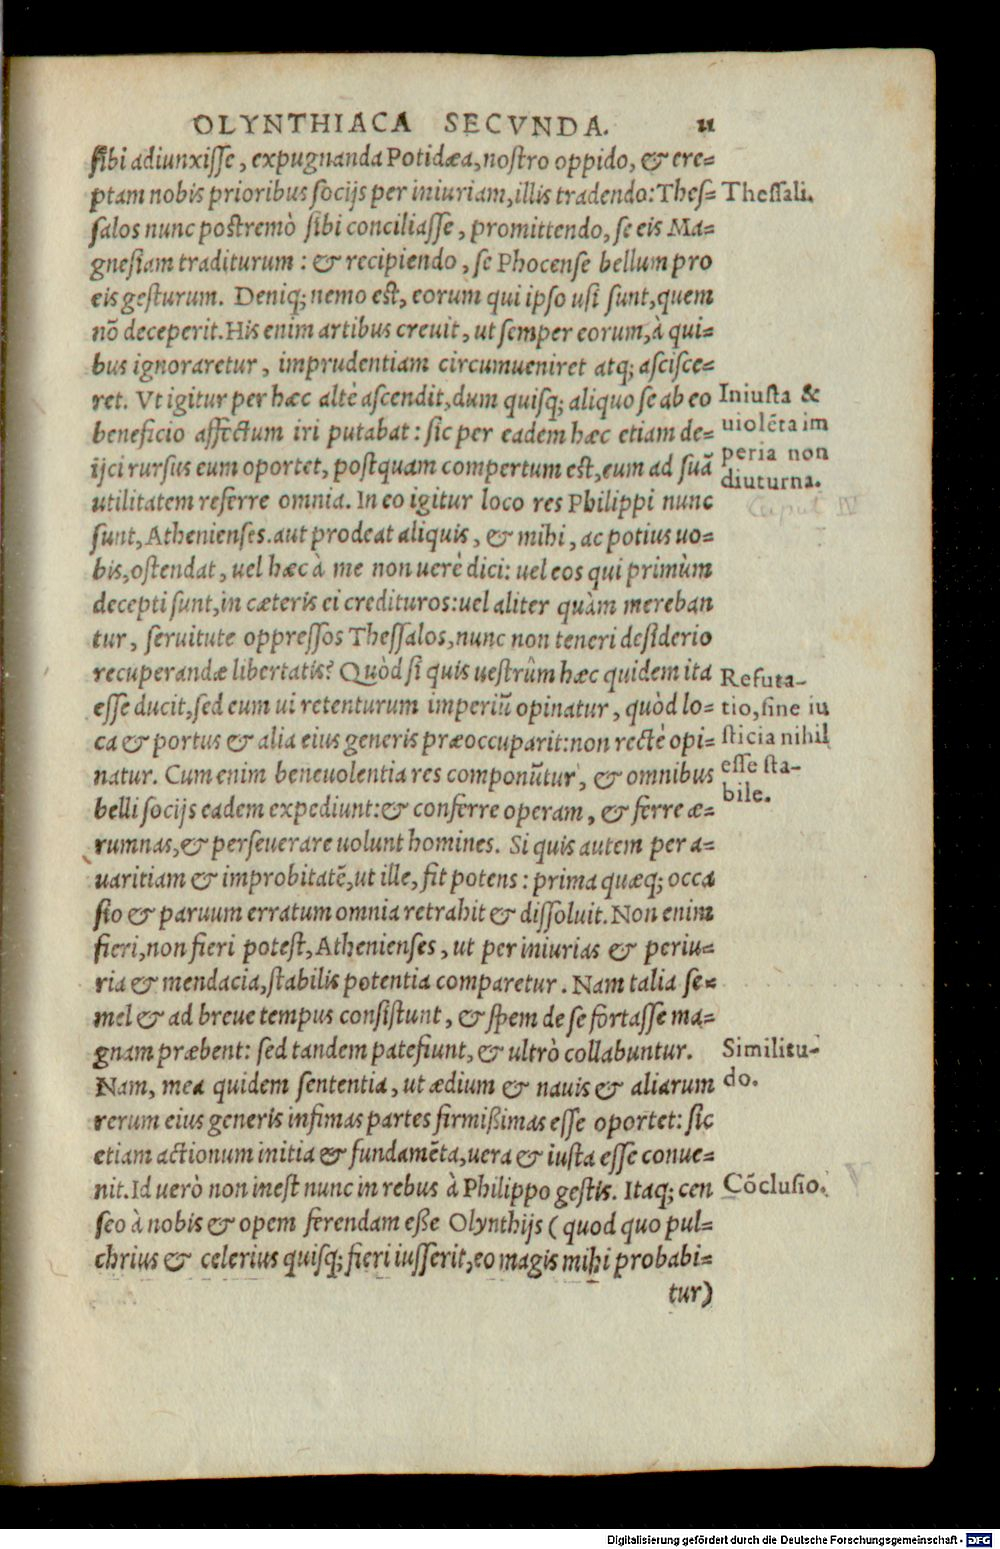 OLYNTHIACA SECVNDA. 11
sibi adiunxisse, expugnanda Potidæa, nostro oppido, & ere=
ptam nobis prioribus socijs per iniuriam, illis tradendo: Thes=
Thessali.
salos nunc postremò sibi conciliasse, promittendo, se eis Ma=
gnesiam traditurum: & recipiendo, se Phocense bellum pro
eis gesturum. Deniq; nemo est, eorum qui ipso usi sunt, quem
nō deceperit. His enim artibus creuit, ut semper eorum, à qui=
bus ignoraretur, imprudentiam circumueniret atq; ascisce=
ret. Vt igitur per hæc altè ascendit, dum quisq; aliquo se ab eo
beneficio affectum iri putabat: sic per eadem hæc etiam de=
ijci rursus eum oportet, postquam compertum est, eum ad suā
utilitatem referre omnia. In eo igitur loco res Philippi nunc
Iniusta &
uiolēta im
peria non
diuturna.
Caput IV
sunt, Athenienses. aut prodeat aliquis, & mihi, ac potius uo=
bis, ostendat, uel hæc à me non uerè dici: uel eos qui primùm
decepti sunt, in cæteris ei credituros: uel aliter quàm mereban
tur, seruitute oppressos Thessalos, nunc non teneri desiderio
recuperandæ libertatis? Quòd si quis uestrûm hæc quidem ita
esse ducit, sed eum ui retenturum imperiū opinatur, quòd lo=
ca & portus & alia eius generis præoccuparit: non rectè opi=
natur. Cum enim beneuolentia res componūtur, & omnibus
Refuta-
tio, sine iu
sticia nihil
esse sta-
bile.
belli socijs eadem expediunt: & conferre operam, & ferre æ=
rumnas, & perseuerare uolunt homines. Si quis autem per a=
uaritiam & improbitatē, ut ille, fit potens: prima quæq; occa
sio & paruum erratum omnia retrahit & dissoluit. Non enim
fieri, non fieri potest, Athenienses, ut per iniurias & periu=
ria & mendacia, stabilis potentia comparetur. Nam talia se=
mel & ad breue tempus consistunt, & spem de se fortasse ma=
gnam præbent: sed tandem patefiunt, & ultrò collabuntur.
Nam, mea quidem sententia, ut ædium & nauis & aliarum
Similitu-
do.
rerum eius generis infimas partes firmißimas esse oportet: sic
etiam actionum initia & fundamēta, uera & iusta esse conue=
nit. Id uerò non inest nunc in rebus à Philippo gestis. Itaq; cen
Cōclusio.
V
seo à nobis & opem ferendam eße Olynthijs (quod quo pul=
chrius & celerius quisq; fieri iusserit, eo magis mihi probabi=
tur)
Digitalisierung gefördert durch die Deutsche Forschungsgemeinschaft - DFG